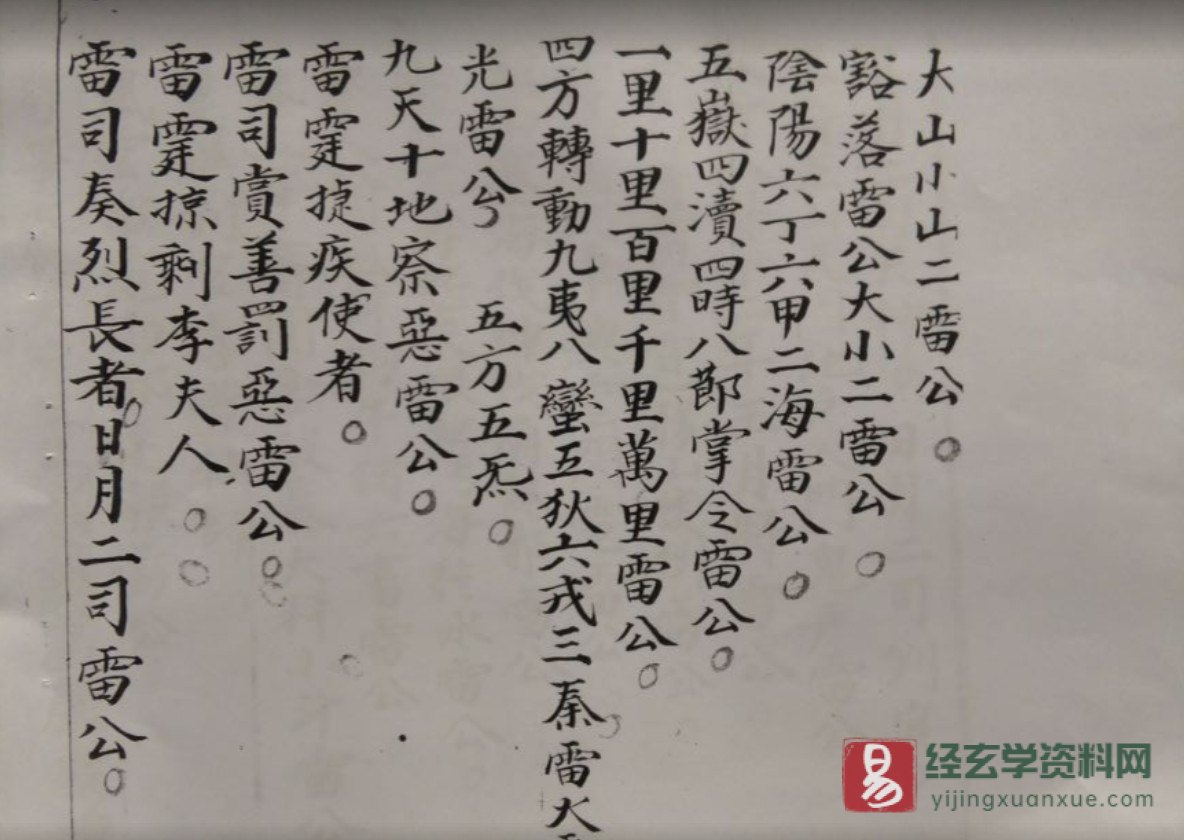 大山小山二雷公
豁落雷公大小二雷公
陰陽六丁六甲二海雷公
五嶽四瀆四時八節掌令雷公
一里十里百里千里萬里雷公
四方轉動九夷八蠻五狄六戎三秦雷火
光雷公 五方五炁
九天十地察惡雷公
雷霆捷疾使者
雷司賞善罰惡雷公
雷霆掠剩李夫人
雷司奏烈長者日月二司雷公
易
经玄学资料网
yijingxuanxue.com